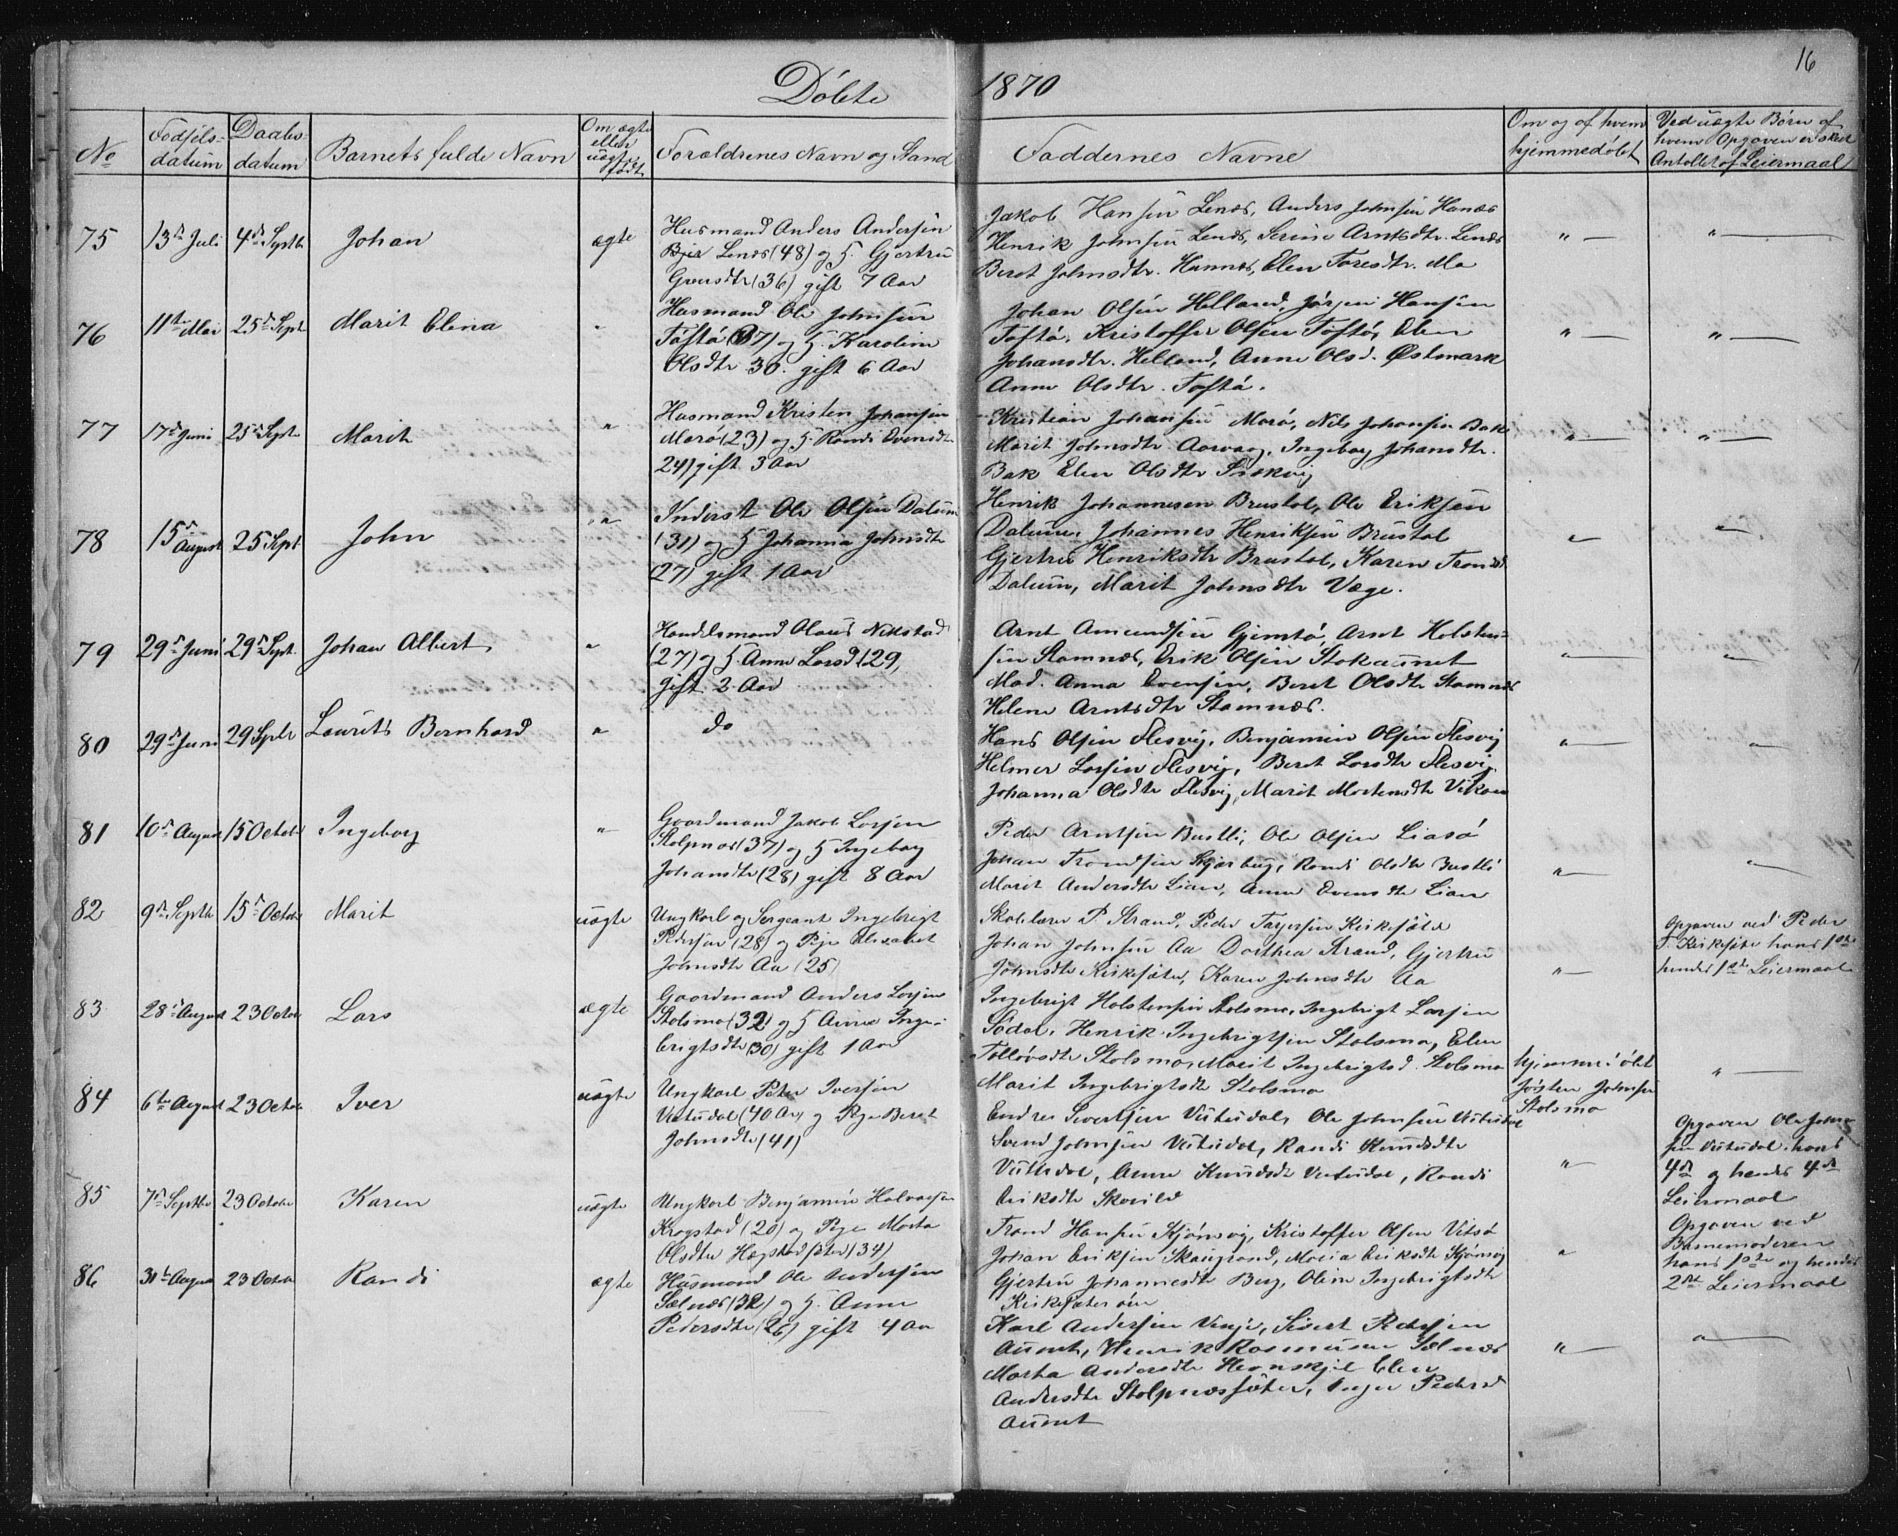 16
Döbte 1870
No
Fodsels-
datum
Daabs-
datum
Barnets fulde Navn
Om ægte
eller
uægte
født
Forældrenes Navn og Stand
Faddernes Navne
Om og af hvem
hjemmedöbt
Ved uægte Børn af
hvem Opgaven er skeet
Antallet af Leiermaal
75 13de Juli 4de Septbr Johan ægte
Husmand Anders Andersen
Lenes (48) og H. Gjertru
(36) gift 7 Aar
Jakob Hansen Lenes, Anders Johnsen Hanes
Henrik Johnsen Lenes, Serine Arntsdtr. Lenes
Beret Johnsdtr. Hamnes, Elen Toresdtr. Mo
" "
76 11te Mai 25de Sept Marit Elena "
Husmand Ole Johnsen
Toftö (37) og H. Karolina
Olsdtr 30. gift 6 Aar
Johan Olsen Helland, Jørgen Hansen
Toftö, Kristoffer Olsen Toftö, Elen
Johansdtr. Helland, Anne Olsd. Østmark
Anne Olsdtr. Toftö.
" "
77 17de Juni 25de Septr Marit "
Husmand Kristen Johansen
Morö (23) og H Randi Evensdtr
24) gift 3 Aar
Kristian Johansen Morö, Nils Johansen Bak
Marit Johnsdtr Aarvaag, Ingeborg Johansdtr.
Bak Elen Olsdtr
" "
78 15de August 25 Sept John "
Inderst Ole Olsen Dalum
(31) og H Johanna Johnsdtr
(27) gift 1 Aar
Henrik Johannesen Brustol, Ole Eriksen
Dalum, Johannes Henriksen Brustol
Gjertru Henriksdtr Brustol, Karen Tronsd.
Dalum, Marit Johnsdtr Væge.
" "
79 29de Juni 29de Sept. Johan Albert "
Handelsmand Olaus Nikstad
(27) og H. Anne Larsd (29,
gift 2 Aar
Arnt Amundsen Gjemtö, Arnt Holsten-
sen Stamnes, Erik Olsen Stokaunet
Mad. Anna Evensen, Beret Olsdtr Stamnes
Helene Arntsdtr Stamnes.
" "
80 29de Juni 29 Septr Laurits Bernhard "
do
Hans Olsen Flesvig, Benjamin Olsen Flesvig
Helmer Larsen Flesvig, Beret Larsdtr Flesvig
Johanna Olsdtr Flesvig, Marit Mortensdtr Vikan
" "
81 10de August 15 Octobr Ingeborg "
Gaardmand Jakob Larsen
Stolpnes (37) og H Ingeborg
Johansdtr (28) gift 8 Aar
Peder Arntsen Bustli, Ole Olsen Liasö
Johan Trondsen Skjærbug, Randi Olsdtr Bustli
Marit Andersdtr Lian, Anne Evensdtr Lian
" "
82 9de Septbr 15de Octobr Marit uægte
Ungkarl og Sergeant Ingebrigt
Pedersen (28) og Pige Elisabet
Johnsdtr Aa (25)
Skolelærer P. Strand, Peder Kirksæter
Johan Johnsen Aa Dorthea Strand, Gjertru
Johnsdtr Kirksæter, Karen Johnsdtr Aa
"
Opgaven ved Peder
Kirksæter hans 1ste
hendes 1ste Leiermaal
83 28de August 23 Octobr Lars ægte
Gaardmand Anders Larsen
Stolsmo (32) og H Anne Inge-
brigtsdtr (30) gift 1 Aar
Ingebrigt Holstensen Stolsmo, Ingebrigt Larsen
Södal, Henrik Ingebrigtsen Stolsmo, Elen
Tollövsdtr Stolsmo, Marit Ingebrigtsd. Stolsmo
Marit Ingebrigtsdtr Stolsmo
hjemmedöbt
Johnsen
Stolsmo
"
84 6te August 23 Octobr Iver uægte
Ungkarl Peter Iversen
Vutudal (40 Aar) og Pige Beret
Johnsdtr (41)
Endre Sivertsen Vutudal, Ole Johnsen Vutudal
Svend Johnsen Vutudal, Randi Knudsdtr
Vutudal, Anne Knudsdtr Vutudal, Randi
Eriksdtr
"
Opgaven Ole John-
sen Vutudal. hans
4de og hendes 4de
Leiermaal
85 7de Septbr 23 Octobr Karen uægte
Ungkarl Benjamin Halvorsen
Krogstad (20) og Pige Marta
Olsdtr (34)
Trond Hansen Kjönsvig, Kristoffer Olsen Vitsö
Johan Eriksen Skaugrand, Maria Eriksdtr Kjönsvig
Gjertru Johannesdtr Berg, Oline Ingebrigtsdtr
Kirksæterören
"
Opgaven ved
Barnemoderen
hans 1ste og hendes
2det Leiermaal
86 31te August 23 Octobr Randi ægte
Husmand Ole Andersen
Selnes (32) og H. Anne
Pedersdtr (26) gift 4 Aar
Karl Andersen Vinje, Sivert Pedersen
Aunet, Henrik Rasmusen Selnes
Marta Andersdtr Hemskjel Elen
Andersdtr Stolpnessæter, Inger Pedersd
Aunet
" "